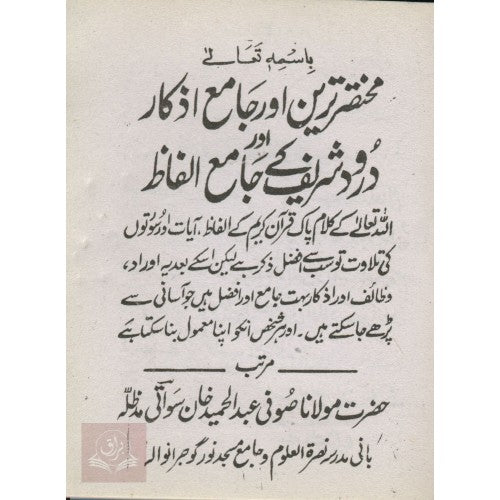 باسمہٖ تعالےٰ
مختصر ترین اور جامع اذکار
اور
درود شریف کے جامع الفاظ
اللہ تعالےٰ کے کلام پاک قرآن کریم کے الفاظ، آیات اور سورتوں
کی تلاوت تو سب سے افضل ذکر ہے لیکن اسکے بعد یہ اوراد،
وظائف اور اذکار بہت جامع اور افضل ہیں جو آسانی سے
پڑھے جا سکتے ہیں۔ اور ہر شخص انکو اپنا معمول بنا سکتا ہے
مرتب
حضرت مولانا صوفی عبد الحمید خان سواتی مدظلہ
بانی مدرسہ نصرۃ العلوم و جامع مسجد نور گوجرانوالہ
براق